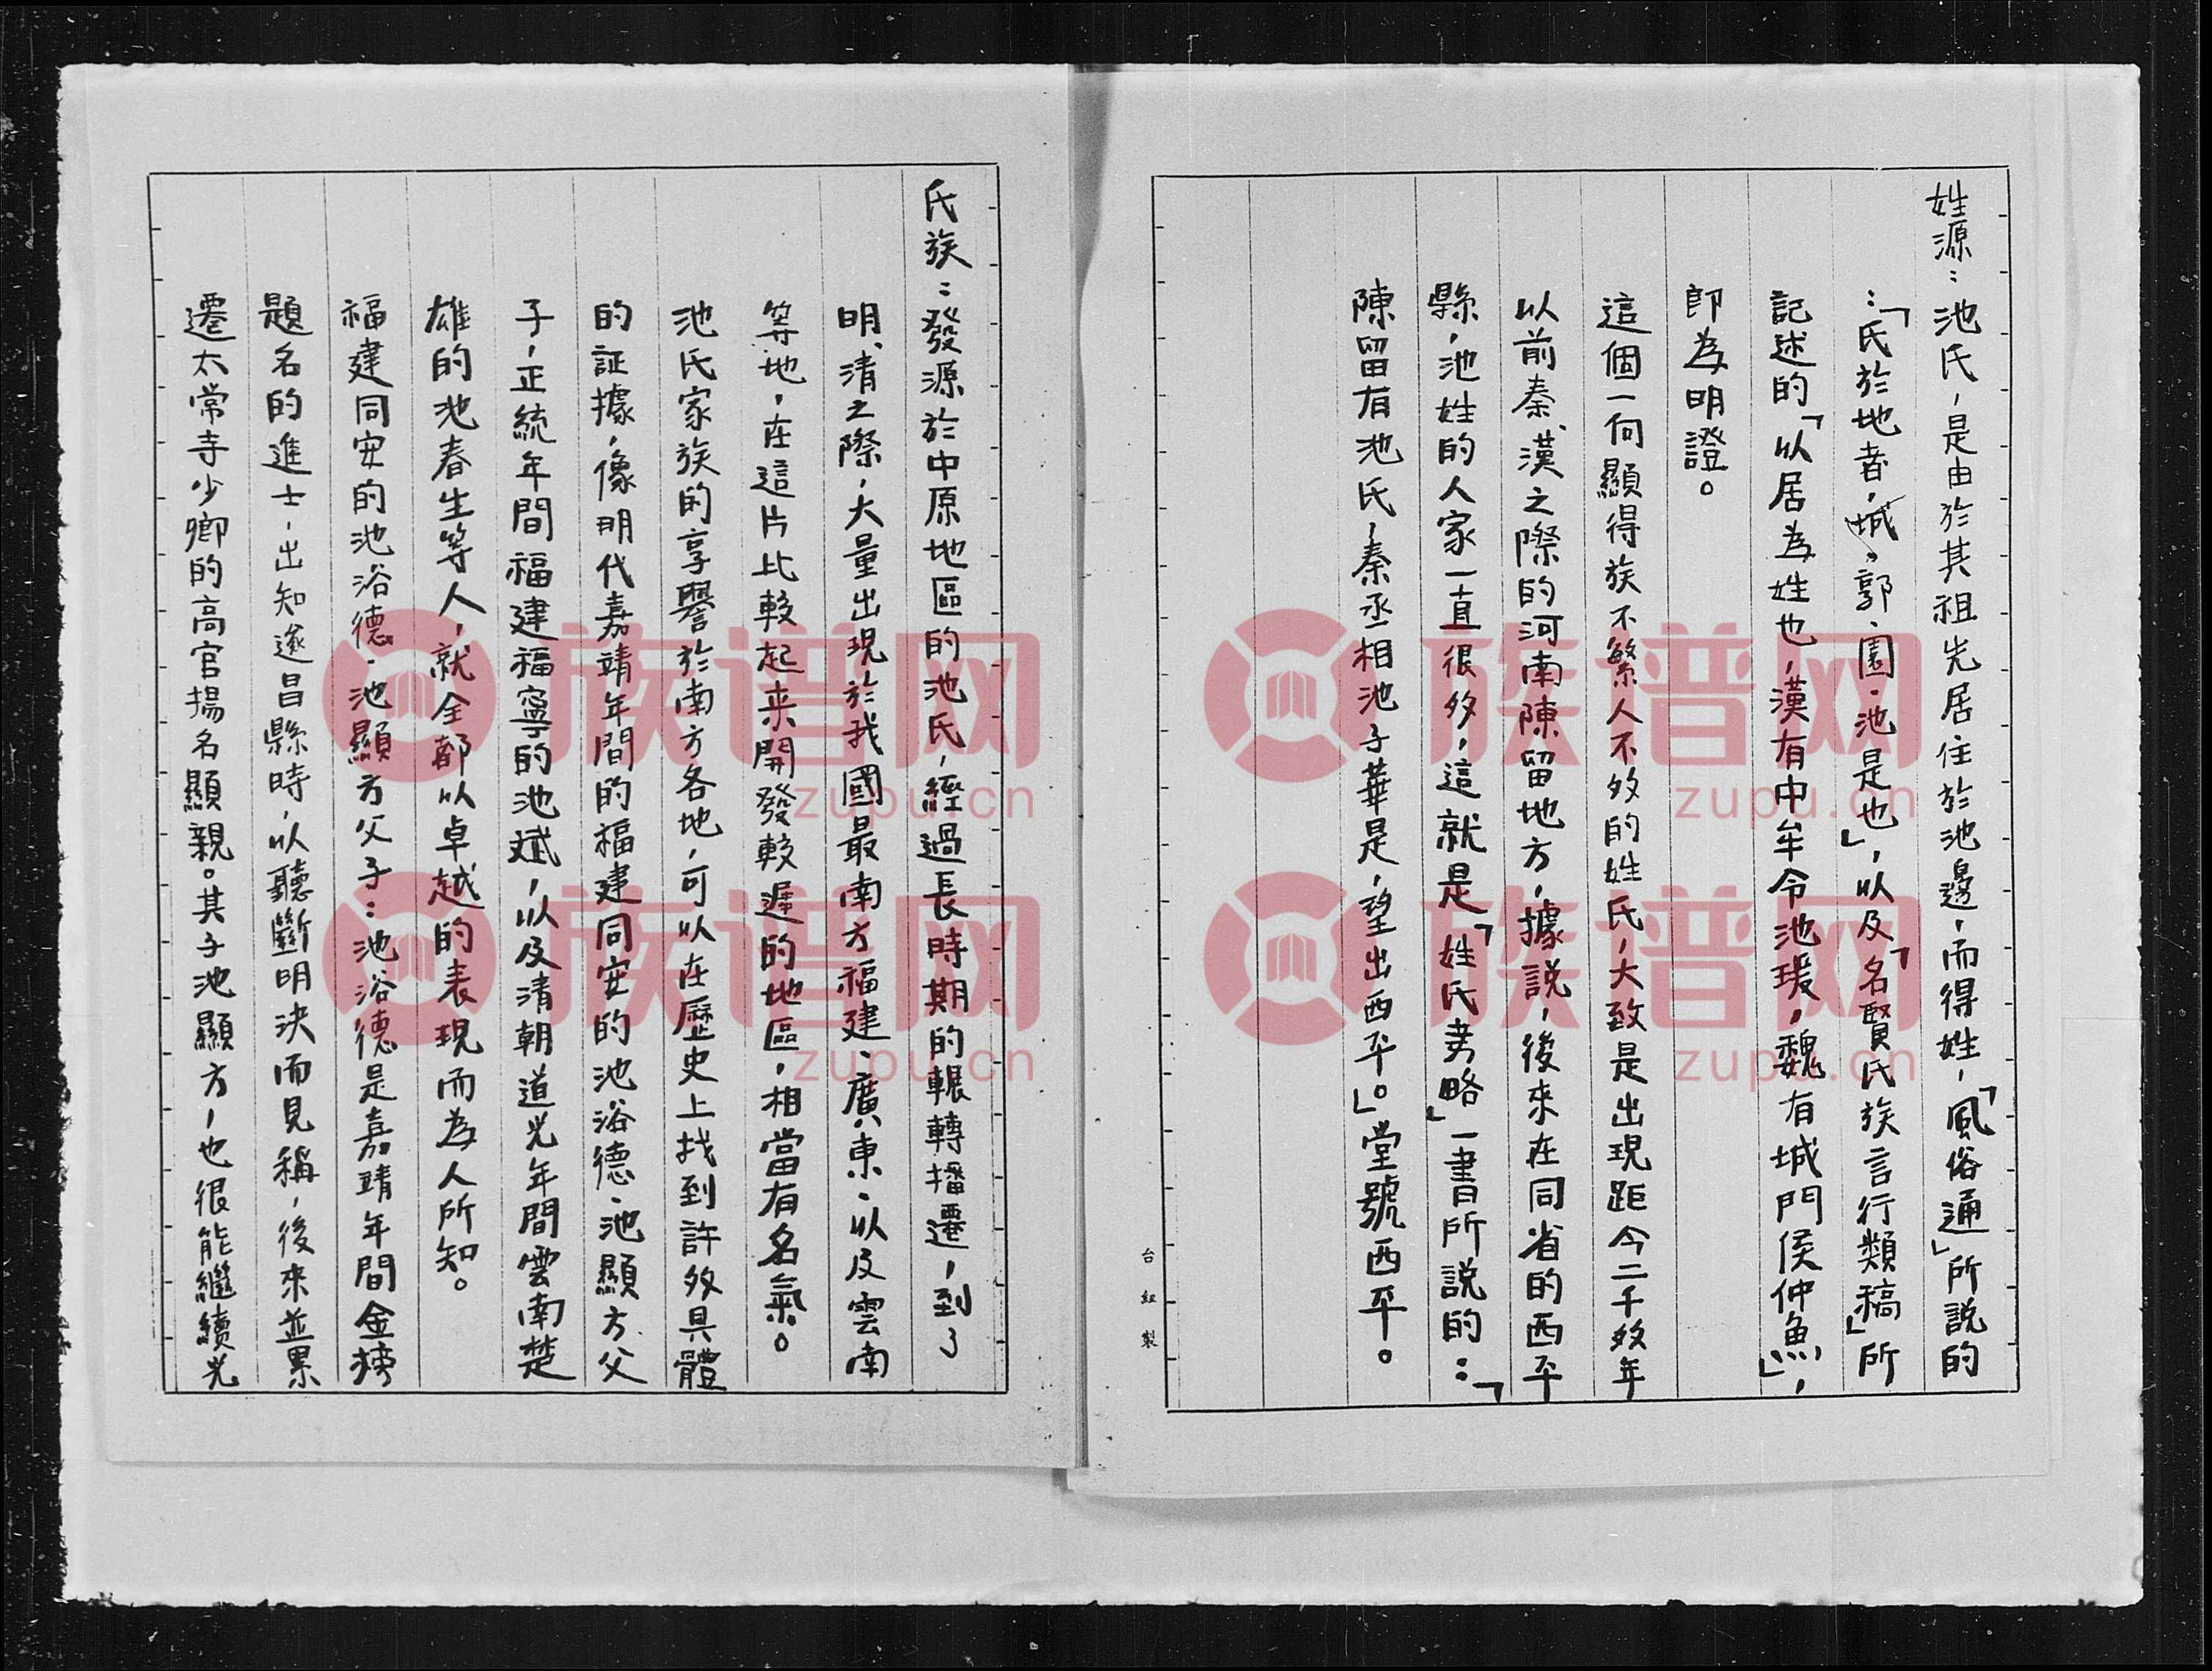 姓源：池氏，是由於其祖先居住於池邊，而得姓，「風俗通」所説的
：「氏於地者，城、郭、園、池是也」，以及「名賢氏族言行類稿」所
記述的「以居為姓也，漢有中牟令池瑗，魏有城門侯仲魚」，
即為明證。
這個一向顯得族不繁人不多的姓氏，大致是出現距今二千多年
以前秦、漢之際的河南陳留地方，據説，後來在同省的西平
縣，池姓的人家一直很多，這就是「姓氏考略」一書所説的：「
陳留有池氏，秦丞相池子華是，望出西平」。堂號西平。
台紅製
氏族：發源於中原地區的池氏，經過長時期的輾轉播遷，到了
明、清之際，大量出現於我國最南方福建、廣東、以及雲南
等地，在這片比較起来開發較遲的地區，相當有名氣。
池氏家族的享譽於南方各地，可以在歷史上找到許多具體
的証據，像明代嘉靖年間的福建同安的池浴德、池顯方父
子，正統年間福建福寧的池斌，以及清朝道光年間雲南楚
雄的池春生等人，就全都以卓越的表現而為人所知。
福建同安的池浴德、池顯方父子：池浴德是嘉靖年間金榜
題名的進士，出知遂昌縣時，以聽斷明決而見稱，後來並累
遷太常寺少卿的高官揚名顯親。其子池顯方，也很能繼續光
族谱网
zupu.cn
族谱网
zupu.cn
族谱网
zupu.cn
族谱网
zupu.cn